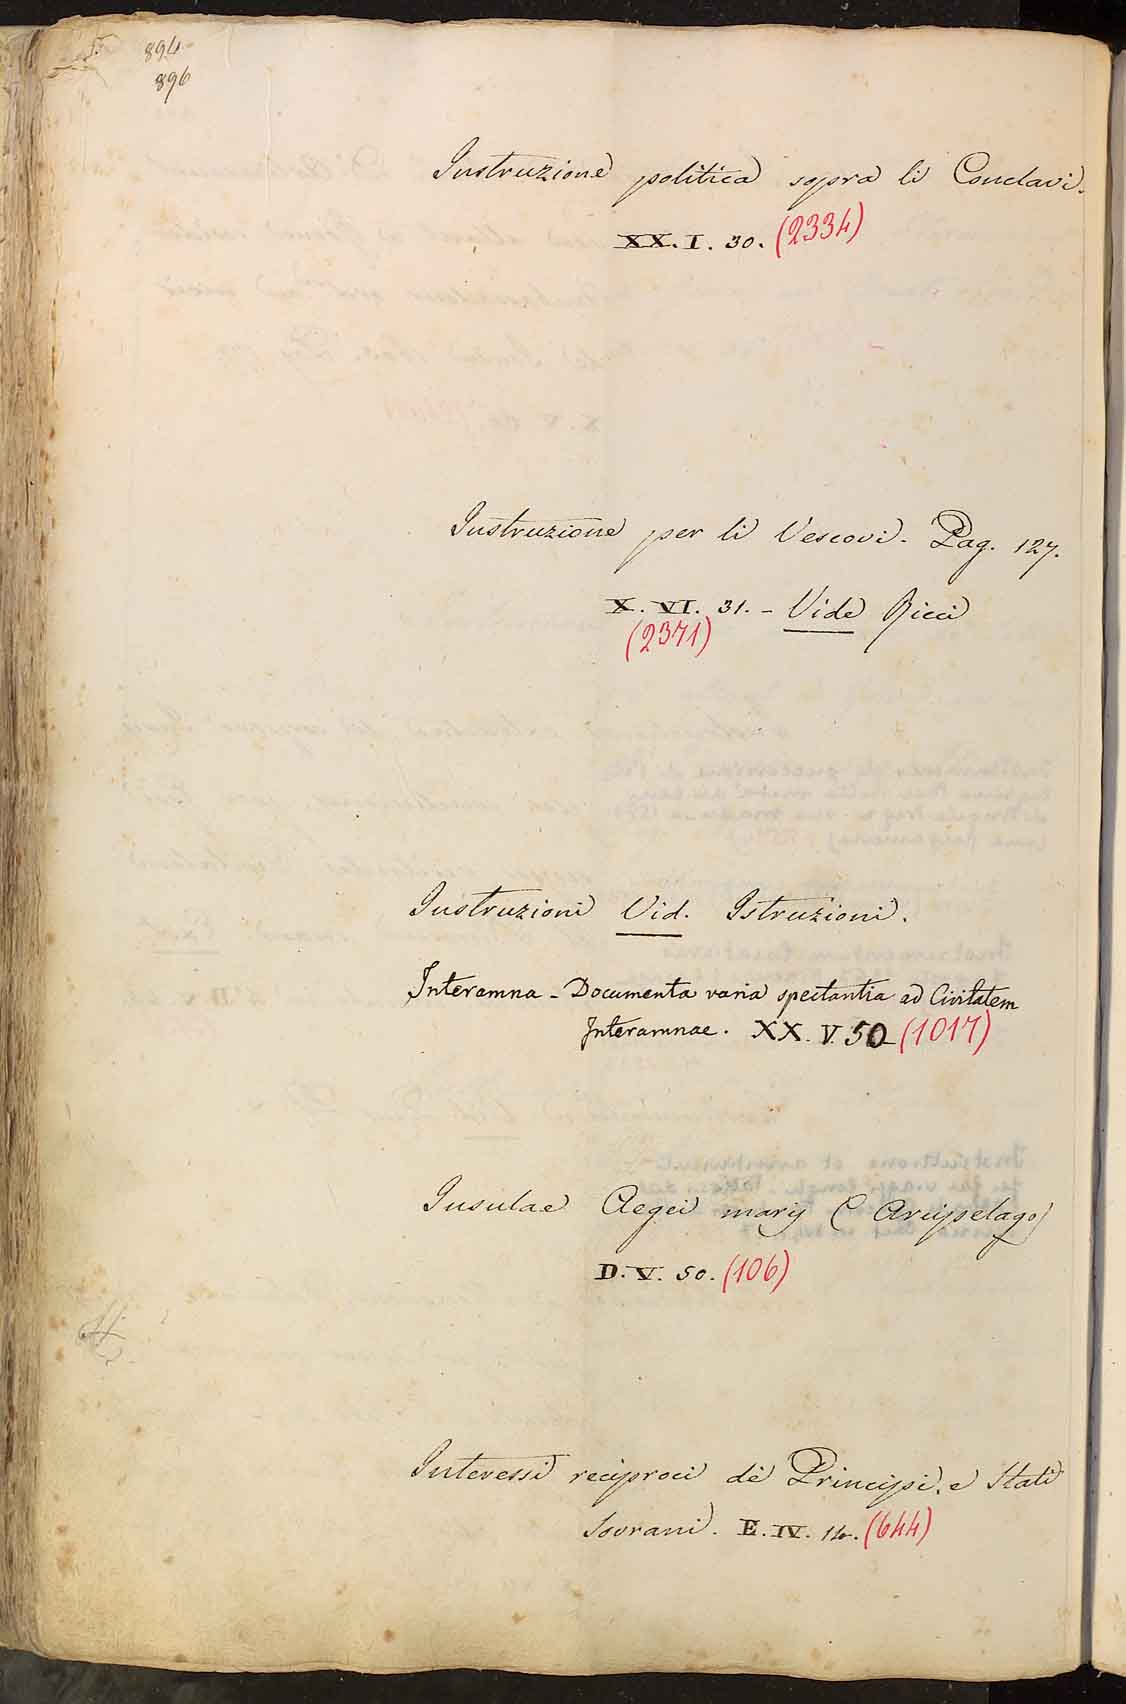 894
896
Instruzione politica sopra li Conclavi.
XX. I. 30. (2334)
Instruzione per li Vescovi. Pag. 127.
X. VI. 31. - Vide Ricci
(2371)
Instruzioni Vid. Istruzioni.
Interamna - Documenta varia spectantia ad Civitatem
Interamnae. XX. V. 50 (1017)
Insulae Aegei marij (Arcipelago)
D. V. 50. (106)
Interessi reciproci dè Principi, e Stati
Sovrani. E. IV. 14. (644)